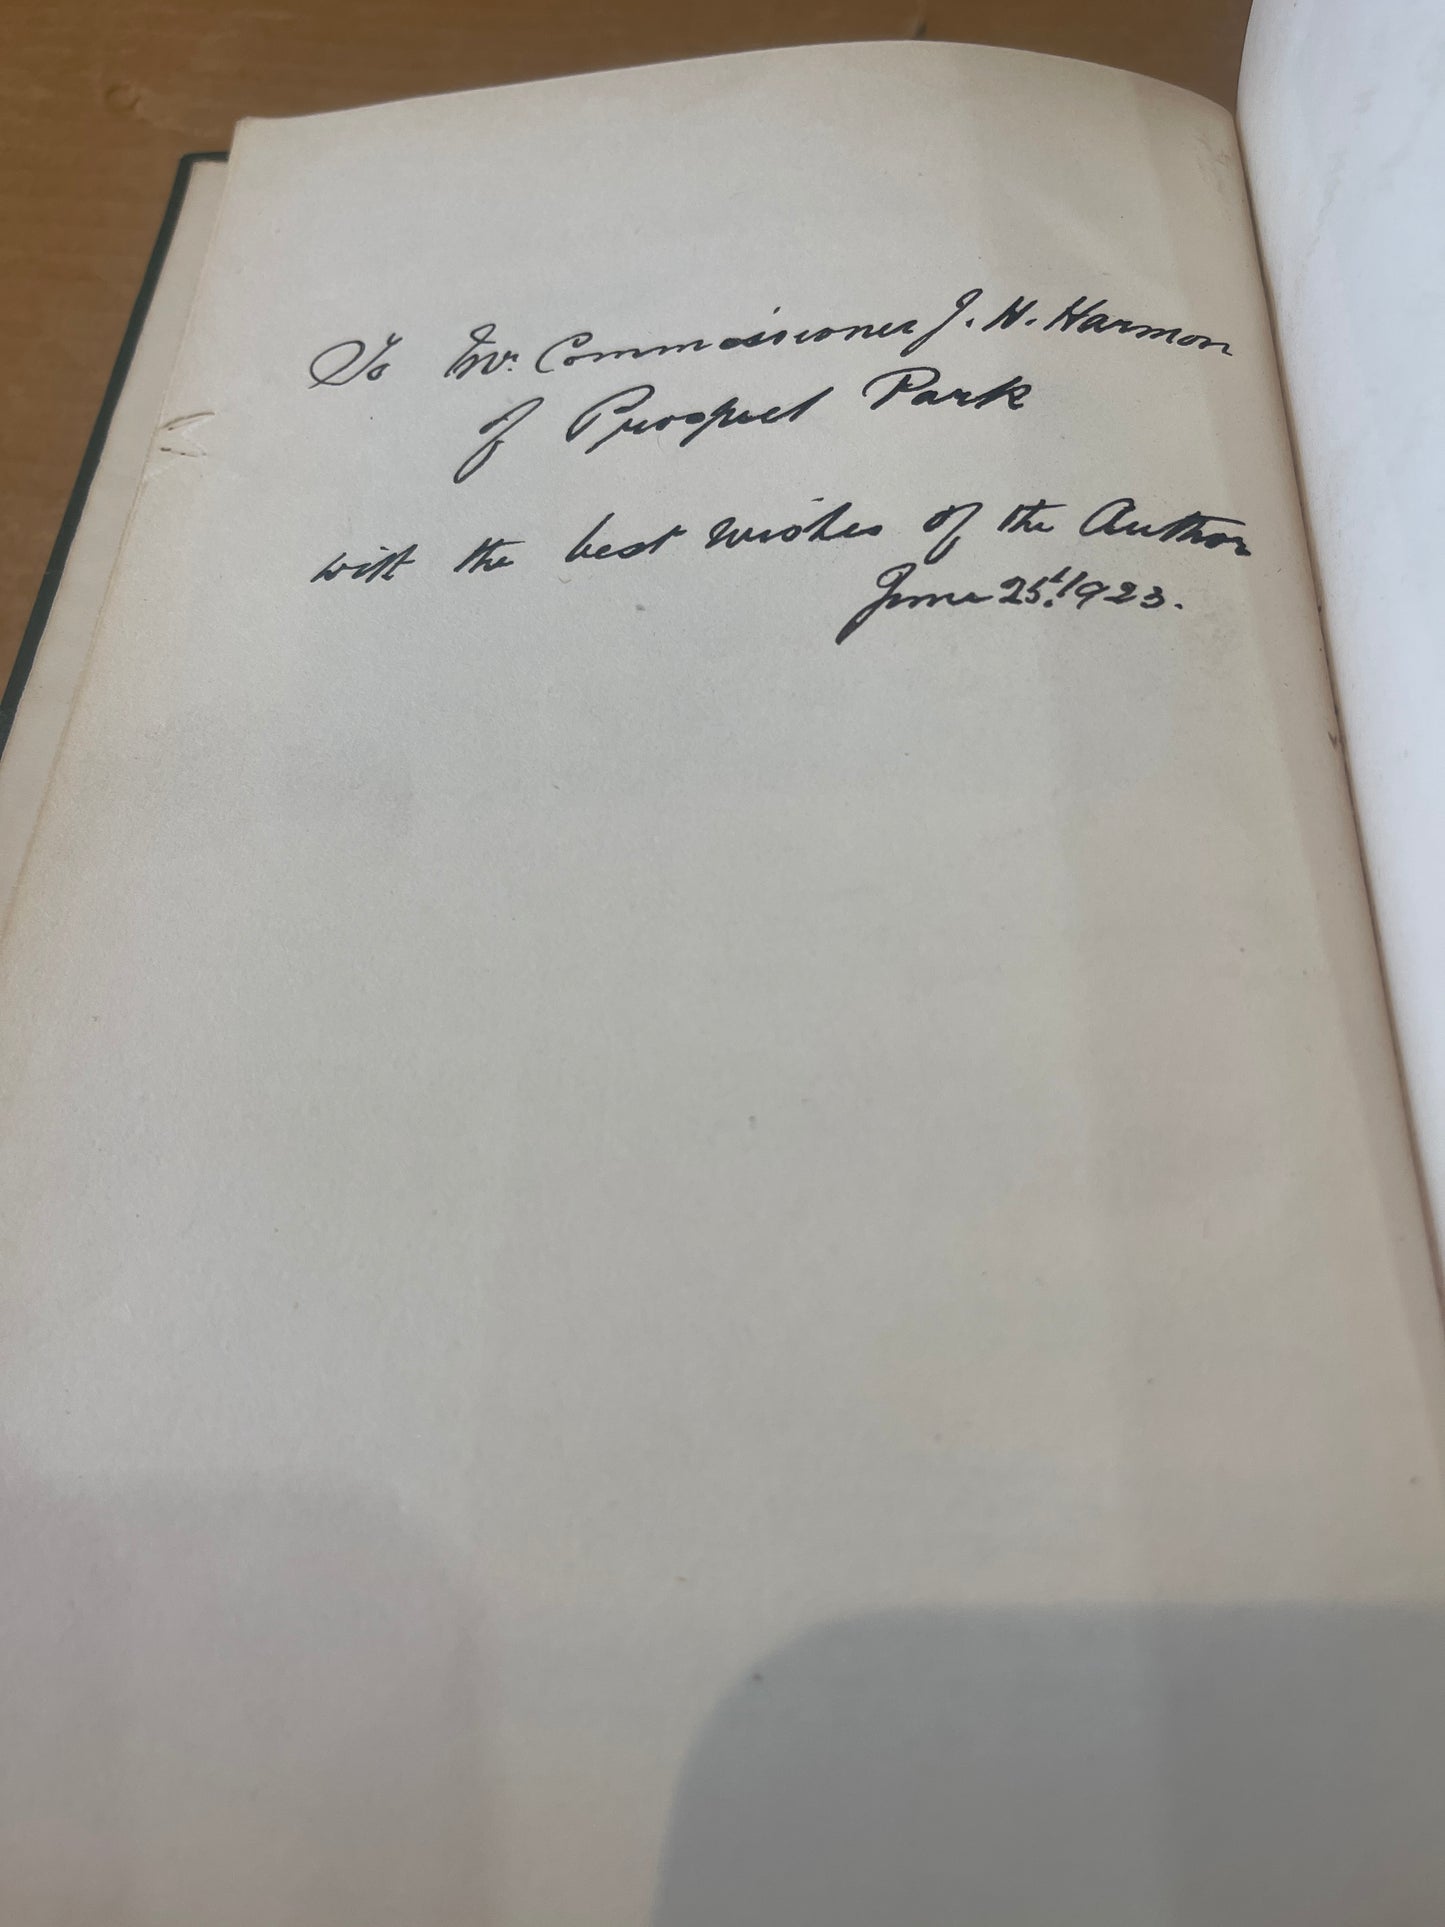 To Mr. Commissioner J. N. Harmon
of Prospect Park
with the best wishes of the Author
June 25t. 1923.